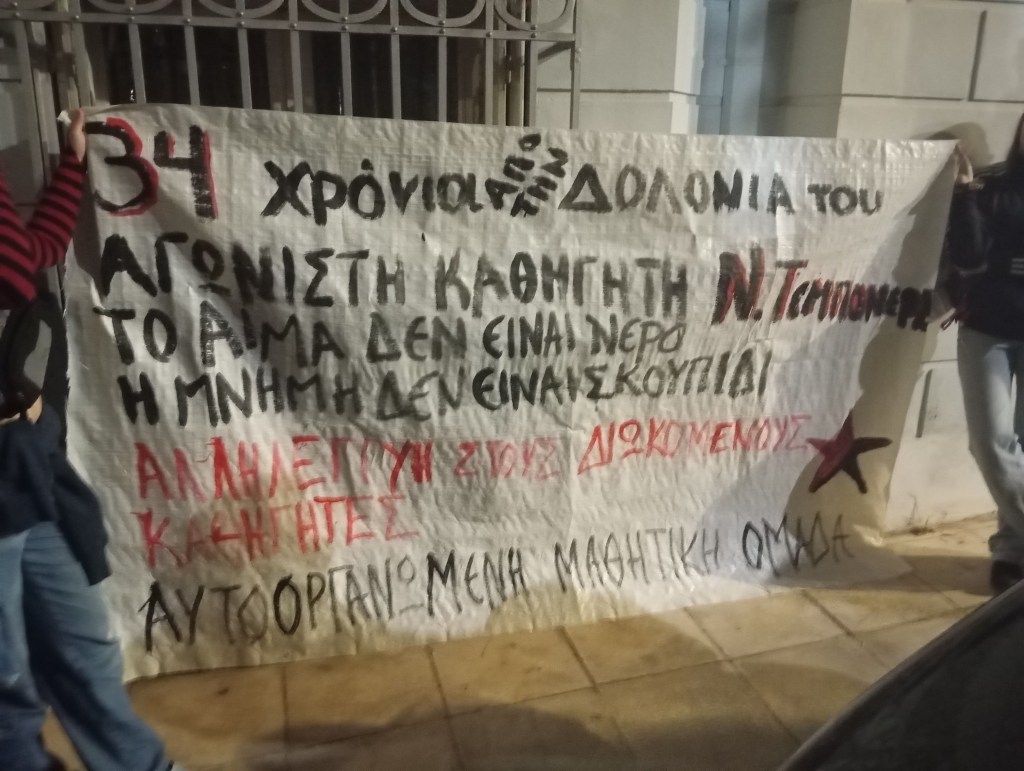 34 χρόνια ΑΠΌ ΤΗΝ ΔΟΛΟΝΙΑ του
ΑΓΩΝΙΣΤΗ ΚΑΘΗΓΗΤΗ Ν. ΤΕΜΠΟΝΕΡΑ
ΤΟ ΑΙΜΑ ΔΕΝ ΕΙΝΑΙ ΝΕΡΟ
Η ΜΝΗΜΗ ΔΕΝ ΕΙΝΑΙ ΣΚΟΥΠΙΔΙ
ΑΛΛΗΛΕΓΓΥΗ ΣΤΟΥΣ ΔΙΩΚΟΜΕΝΟΥΣ
ΚΑΘΗΓΗΤΕΣ
ΑΥΤΟΟΡΓΑΝΩΜΕΝΗ ΜΑΘΗΤΙΚΗ ΟΜΑΔΑ